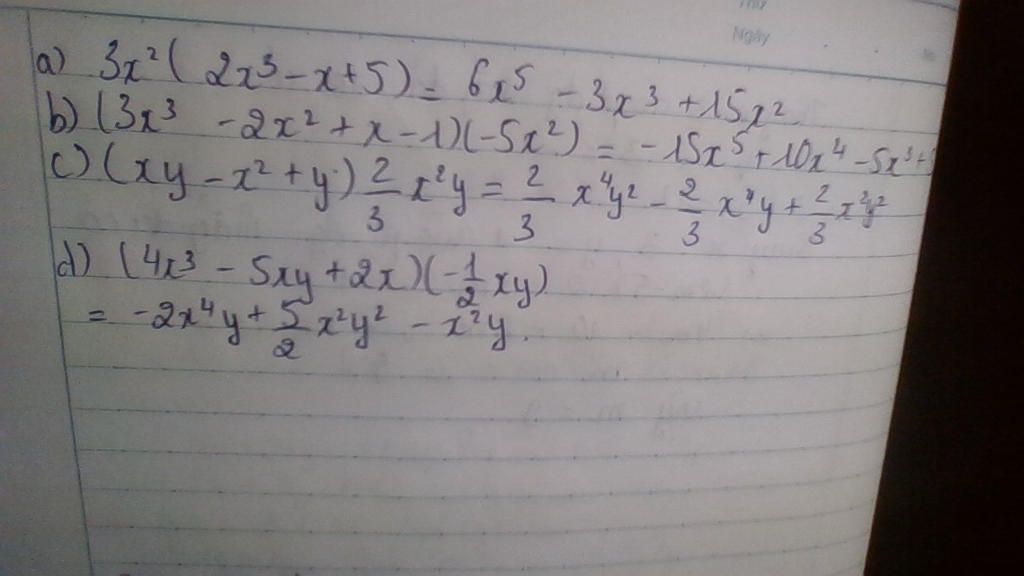 Thứ
Ngày
a) 3x²( 2x³ - x + 5) = 6x⁵ - 3x³ + 15x²
b) (3x³ - 2x² + x - 1)(-5x²) = -15x⁵ + 10x⁴ - 5x³ +
c) (xy - x² + y) 2/3 x²y = 2/3 x⁴y² - 2/3 x⁴y + 2/3 x²y²
d) (4x³ - 5xy + 2x)(-1/2 xy)
= -2x⁴y + 5/2 x²y² - x²y.